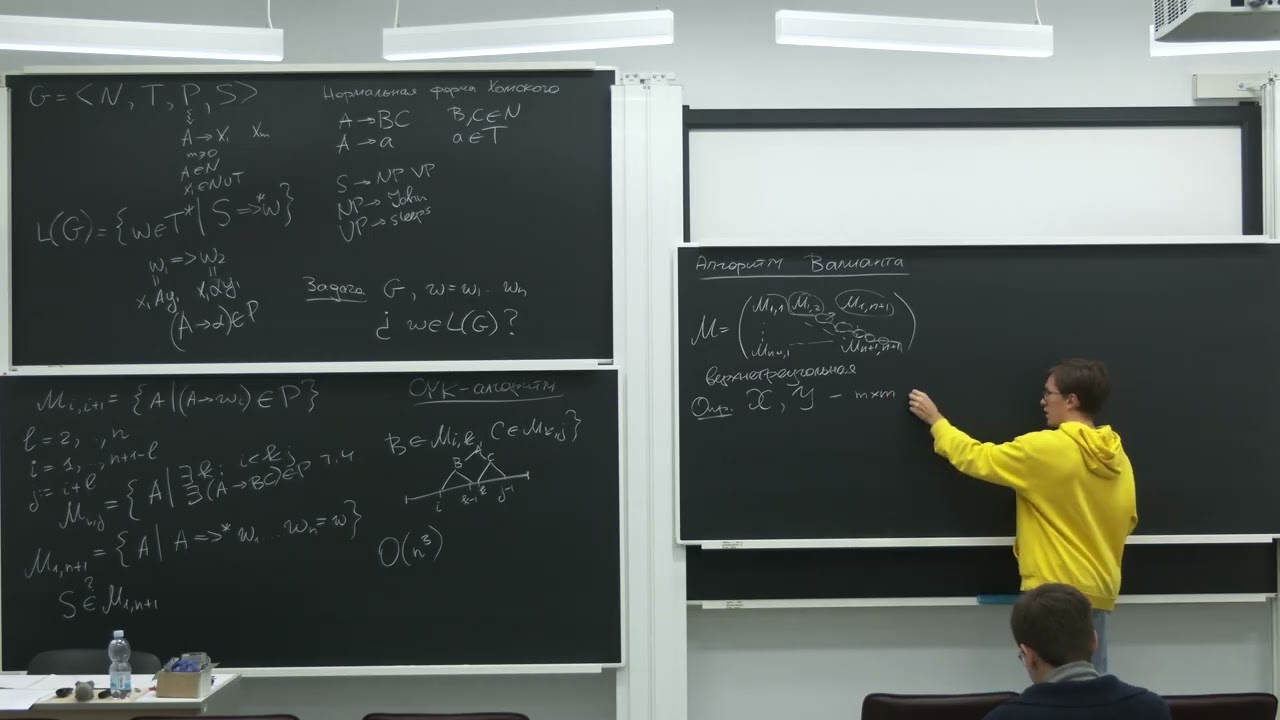 G = < N, T, P, S >
A → x₁ xₘ
m ≥ 0
A ∈ N
xᵢ ∈ N ∪ T
L(G) = { w ∈ T* | S =>* w }
w₁ => w₂
x₁Ay₁ x₁αy₁
(A → α) ∈ P
Нормальная форма Хомского
A → BC B, C ∈ N
A → a a ∈ T
S → NP VP
NP → John
VP → sleeps
Задача G, w = w₁ .. wₙ
¿ w ∈ L(G) ?
Mᵢ,ᵢ₊₁ = { A | (A → wᵢ) ∈ P }
l = 2, .., n
i = 1, .., n+1-l
j = i+l
Mᵢ,ⱼ = { A | ∃ k : i < k < j
∃ (A → BC) ∈ P т.ч.
M₁,ₙ₊₁ = { A | A =>* w₁ ... wₙ = w }
?
S ∈ M₁,ₙ₊₁
CYK-алгоритм
B ∈ Mᵢ,ₖ, C ∈ Mₖ,ⱼ }
A
B C
i k-1 k j-1
O(n³)
Алгоритм Валианта
M = ( M₁,₁ M₁,₂ M₁,ₙ₊₁
Mₙ₊₁,₁ Mₙ₊₁,ₙ₊₁ )
верхнетреугольная
Опр. X, Y – m×m